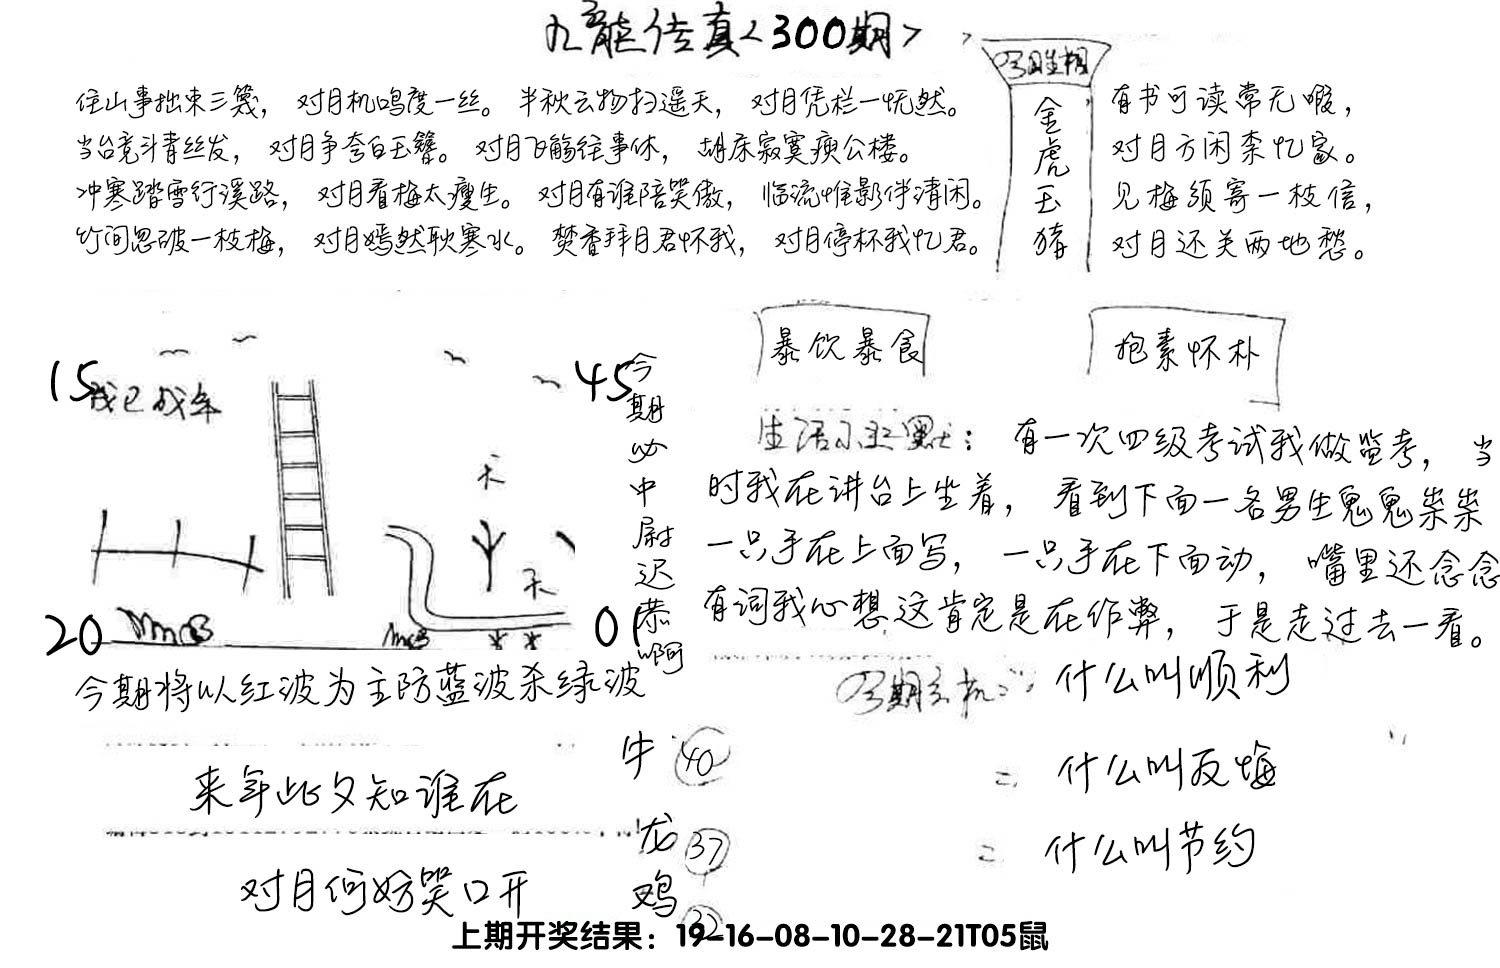 九龍传真<300期>
住山事拙束三篾，对月机鸣度一丝。半秋云物扫遥天，对月凭栏一怃然。
当台竟斗青丝发，对月争夸白玉簪。对月飞觞往事休，胡床寂寞瘐公楼。
冲寒踏雪行溪路，对月看梅太瘦生。对月有谁陪笑傲，临流惟影伴清闲。
竹间忽破一枝梅，对月嫣然耿寒水。焚香拜月君怀我，对月停杯我忆君。
今期生相
金虎玉猪
有书可读常无暇，
对月方闲柰忆家。
见梅须寄一枝信，
对月还关两地愁。
15
45
我已成年
天
天
20
01
今期必中尉迟恭啊
今期将以红波为主防蓝波杀绿波
暴饮暴食
抱素怀朴
生活小幽默：有一次四级考试我做监考，当
时我在讲台上坐着，看到下面一名男生鬼鬼祟祟
一只手在上面写，一只手在下面动，嘴里还念念
有词我心想这肯定是在作弊，于是走过去一看。
今期玄机：什么叫顺利
=什么叫反悔
=什么叫节约
来年此夕知谁在
对月何妨笑口开
牛 40
龙 37
鸡 32
上期开奖结果：19-16-08-10-28-21T05鼠